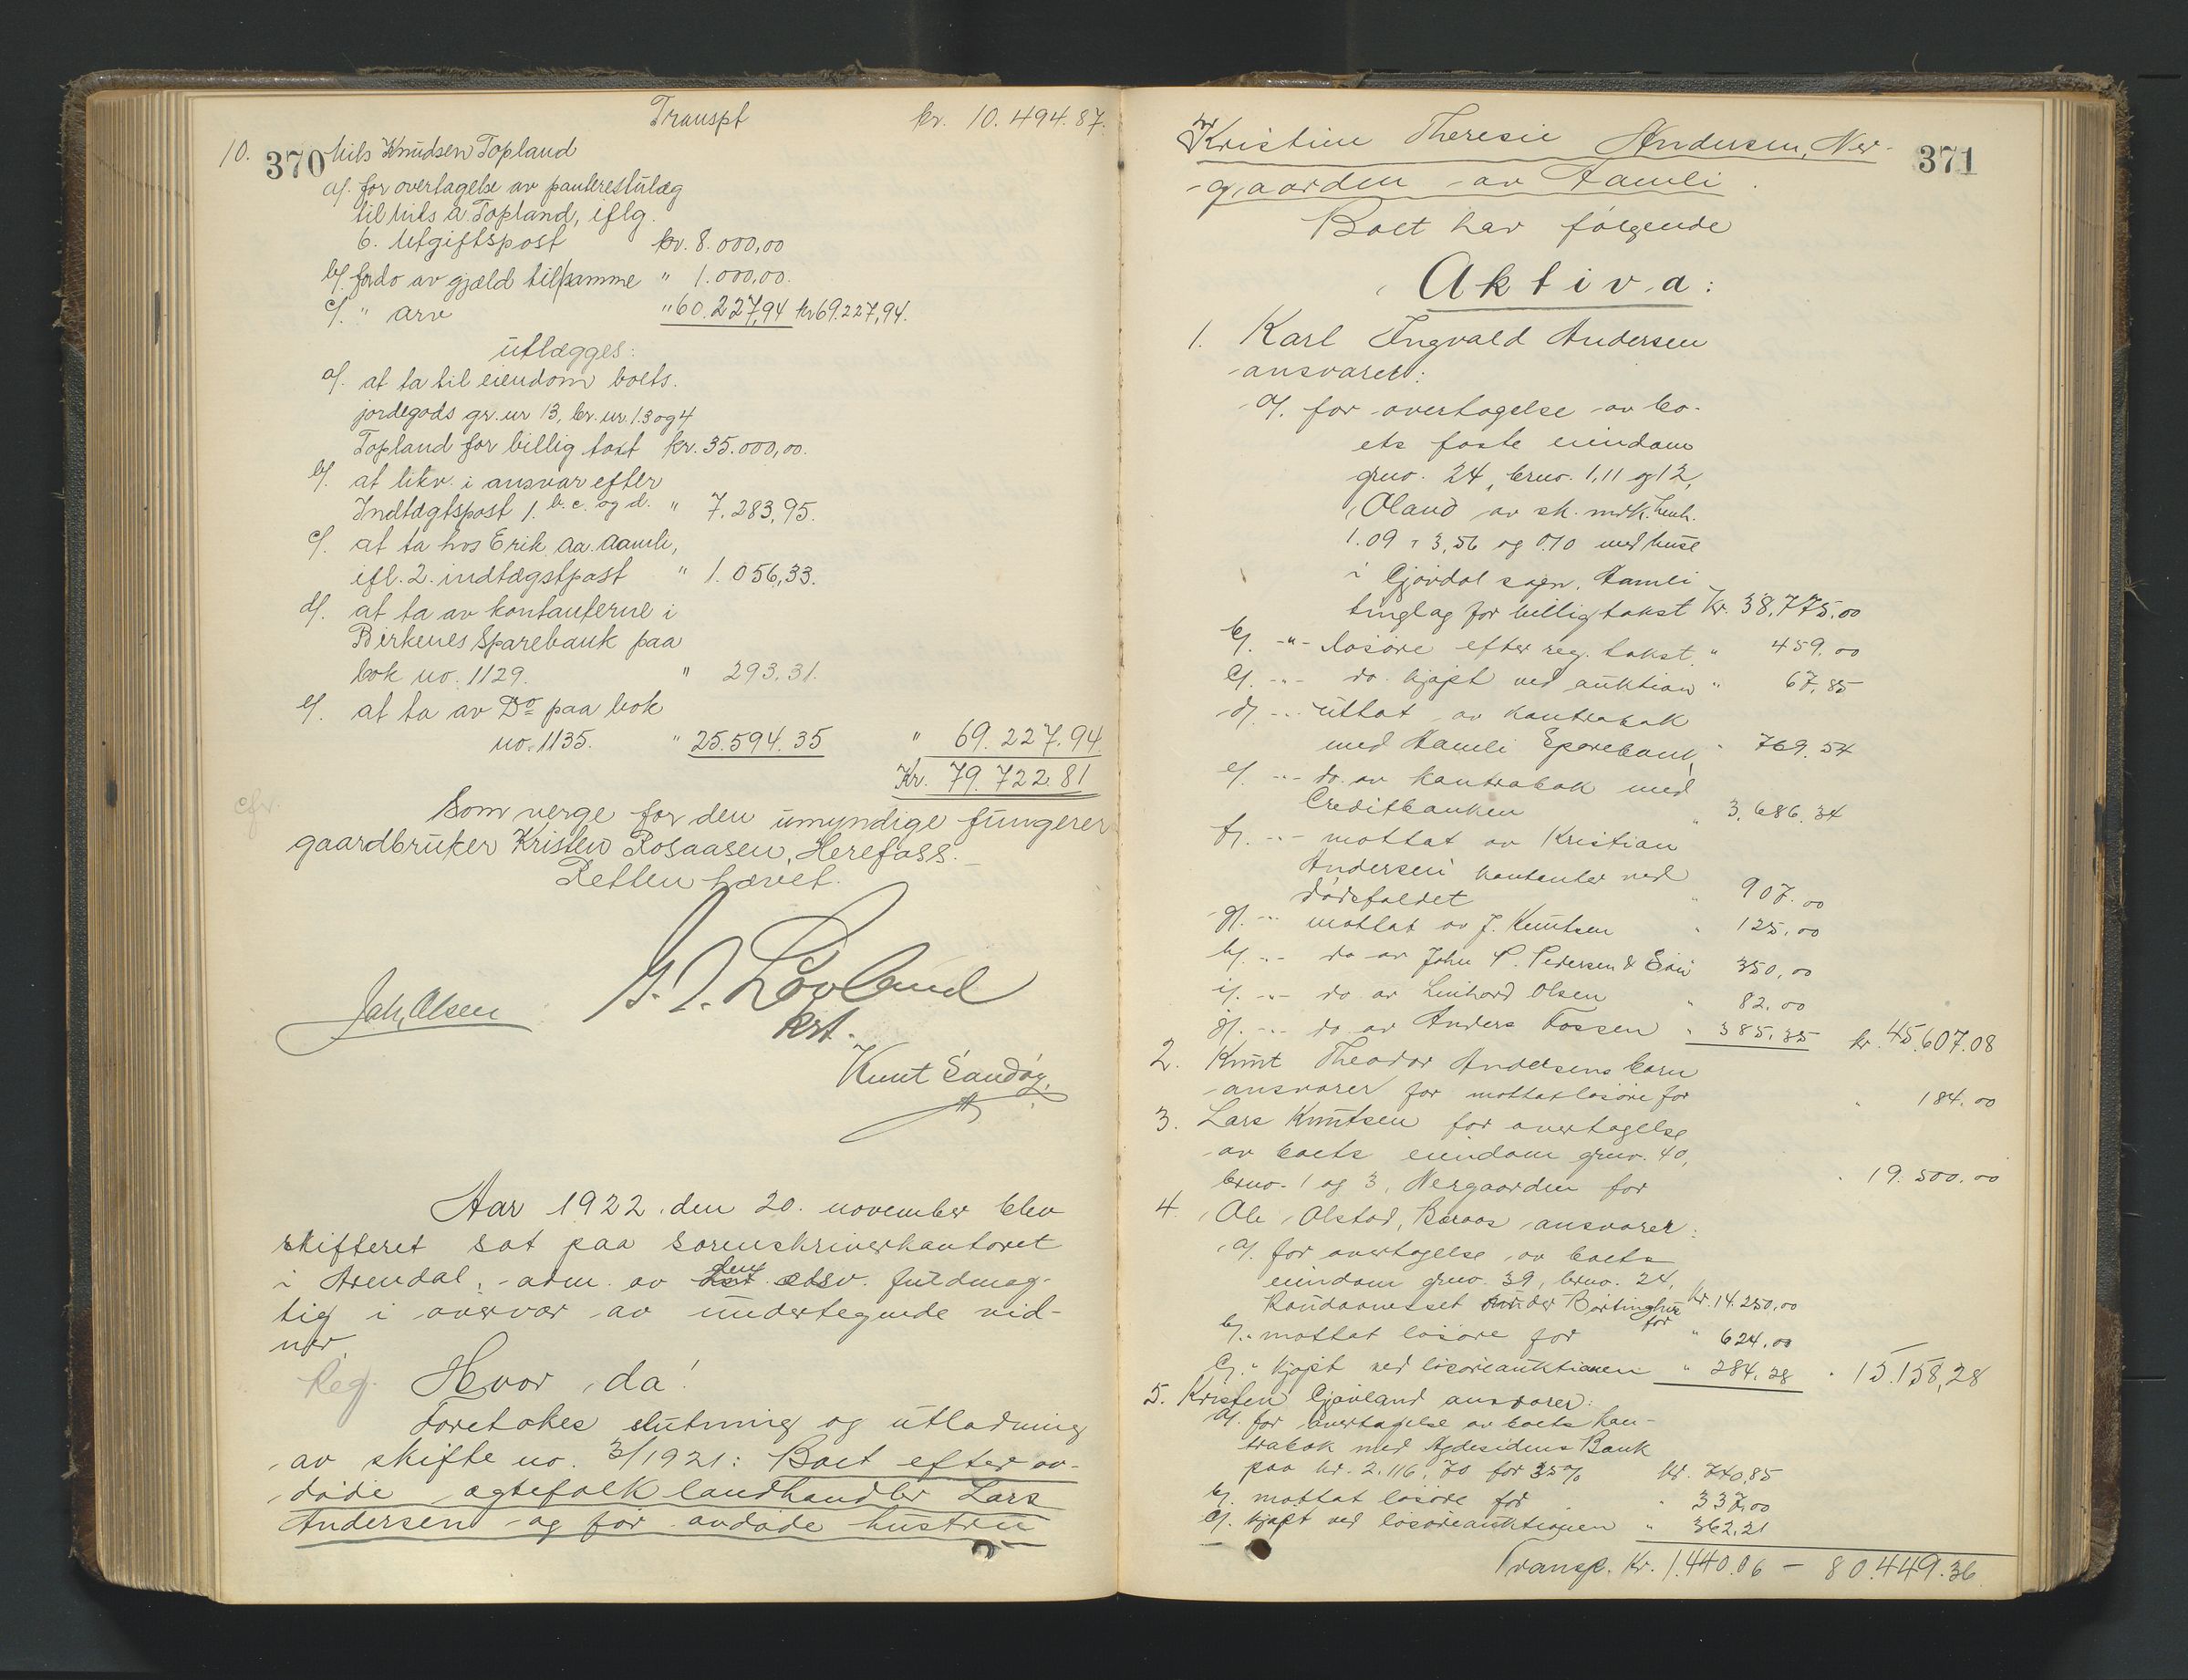 Transpt kr. 10.494.87.
10. 370 Nils Knudsen Topland
a/. for overtagelse av panterestulæg
til Nils A. Topland, iflg.
6. Utgiftspost kr. 8.000,00
b/. for do av gjæld til samme " 1.000,00.
c/. " arv " 60.227,94 kr 69.227,94.
utlægges:
a/. at ta til eiendom boets.
jordegods gr. nr 13, br. nr. 1.3 og 4
Topland for billig taxt kr. 35.000,00.
b/. at likv. i ansvar efter
Indtægtspost 1. b. c. og d. " 7.283,95.
c/. at ta hos Erik Aa. Aamli,
ifl. 2. indtægstpost " 1.056,33.
d/. at ta av kontanterne i
Birkenes Sparebank paa
bok no. 1129. " 293.31.
e/. at ta av Do paa bok
no. 1135. " 25.594.35 " 69.227.94
Kr. 79.722.81
cfr.
Som verge for den umyndige fungerer
gaardbruker Kristen Rosaasen, Herefoss.
Retten hævet.
Joh, Olsen
Kst.
Knut Sandøy.
Aar 1922. den 20. november blev
skifteret sat paa sorenskriverkontoret
i Arendal, adm. av den edsv. fuldmæg-
tig i overvær av undertegnede vid-
ner.
Reg. Hvor da!
Foretokes slutning og utlodning
av skifte no. 3/1921: Boet efter av-
døde egtefolk landhandler Lars
Andersen og før avdøde hustru
Kristine Theresie Andersen, Ner- 371
gaarden av Aamli.
Boet har følgende
Aktiva:
1. Karl Ingvald Andersen
ansvarer:
a/. for overtagelse av bo-
ets faste eiendom
grno. 24, brno. 1, 11 og 12,
Øland av sk. mrk. henh.
1.09, 3,56 og 0.10 med huse
i Gjøvdal sogn, Aamli
tinglag for billig takst Kr. 38.775.00
b/. -"- løsøre efter reg. takst. " 459.00
c/. -"- do. kjøpt ved auktion " 67,85
d/. -"- uttat av kontrabok
med Aamli Sparebank, " 769.54
e/. -"- do. av kontrabok med
Creditbanken " 3.686.34
f/. -"- mottat av Kristian
Andersen kontanter ved
dødsfaldet " 907.00
g/. -"- mottat av J. Knutsen " 125.00
h/. -"- do av John P. Pedersen & Søn 350,00
i/. -"- do av Linhard Olsen " 82.00
j/. -"- do av Anders Fossen " 385,35 kr. 45.607.08
2. Knut Theodor Andersens barn
ansvarer for mottat løsøre for " 184.00
3. Lars Knutsen for overtagelse
av boets eiendom grno. 40,
brno. 1 og 3, Nergaarden for " 19.500.00
4. Ole Olstad, Baraas ansvarer:
a/. for overtagelse av boets
eiendom grno. 39, brno. 24,
under for kr. 14.250,00
b/. " mottat løsøre for " 624.00
c/. " kjøpt ved løsøreauktionen " 284.28 " 15.158,28
5. Kristen Gjøvland ansvarer:
a/. for overtagelse av boets kon-
trabok med Agdesidens Bank
paa kr. 2.116,70 for 35% kr. 740,85
b/. mottat løsøre for " 337.00
c/. kjøpt ved løsøreauktionen " 362.21
Transp. Kr. 1.440.06 - 80.449.36